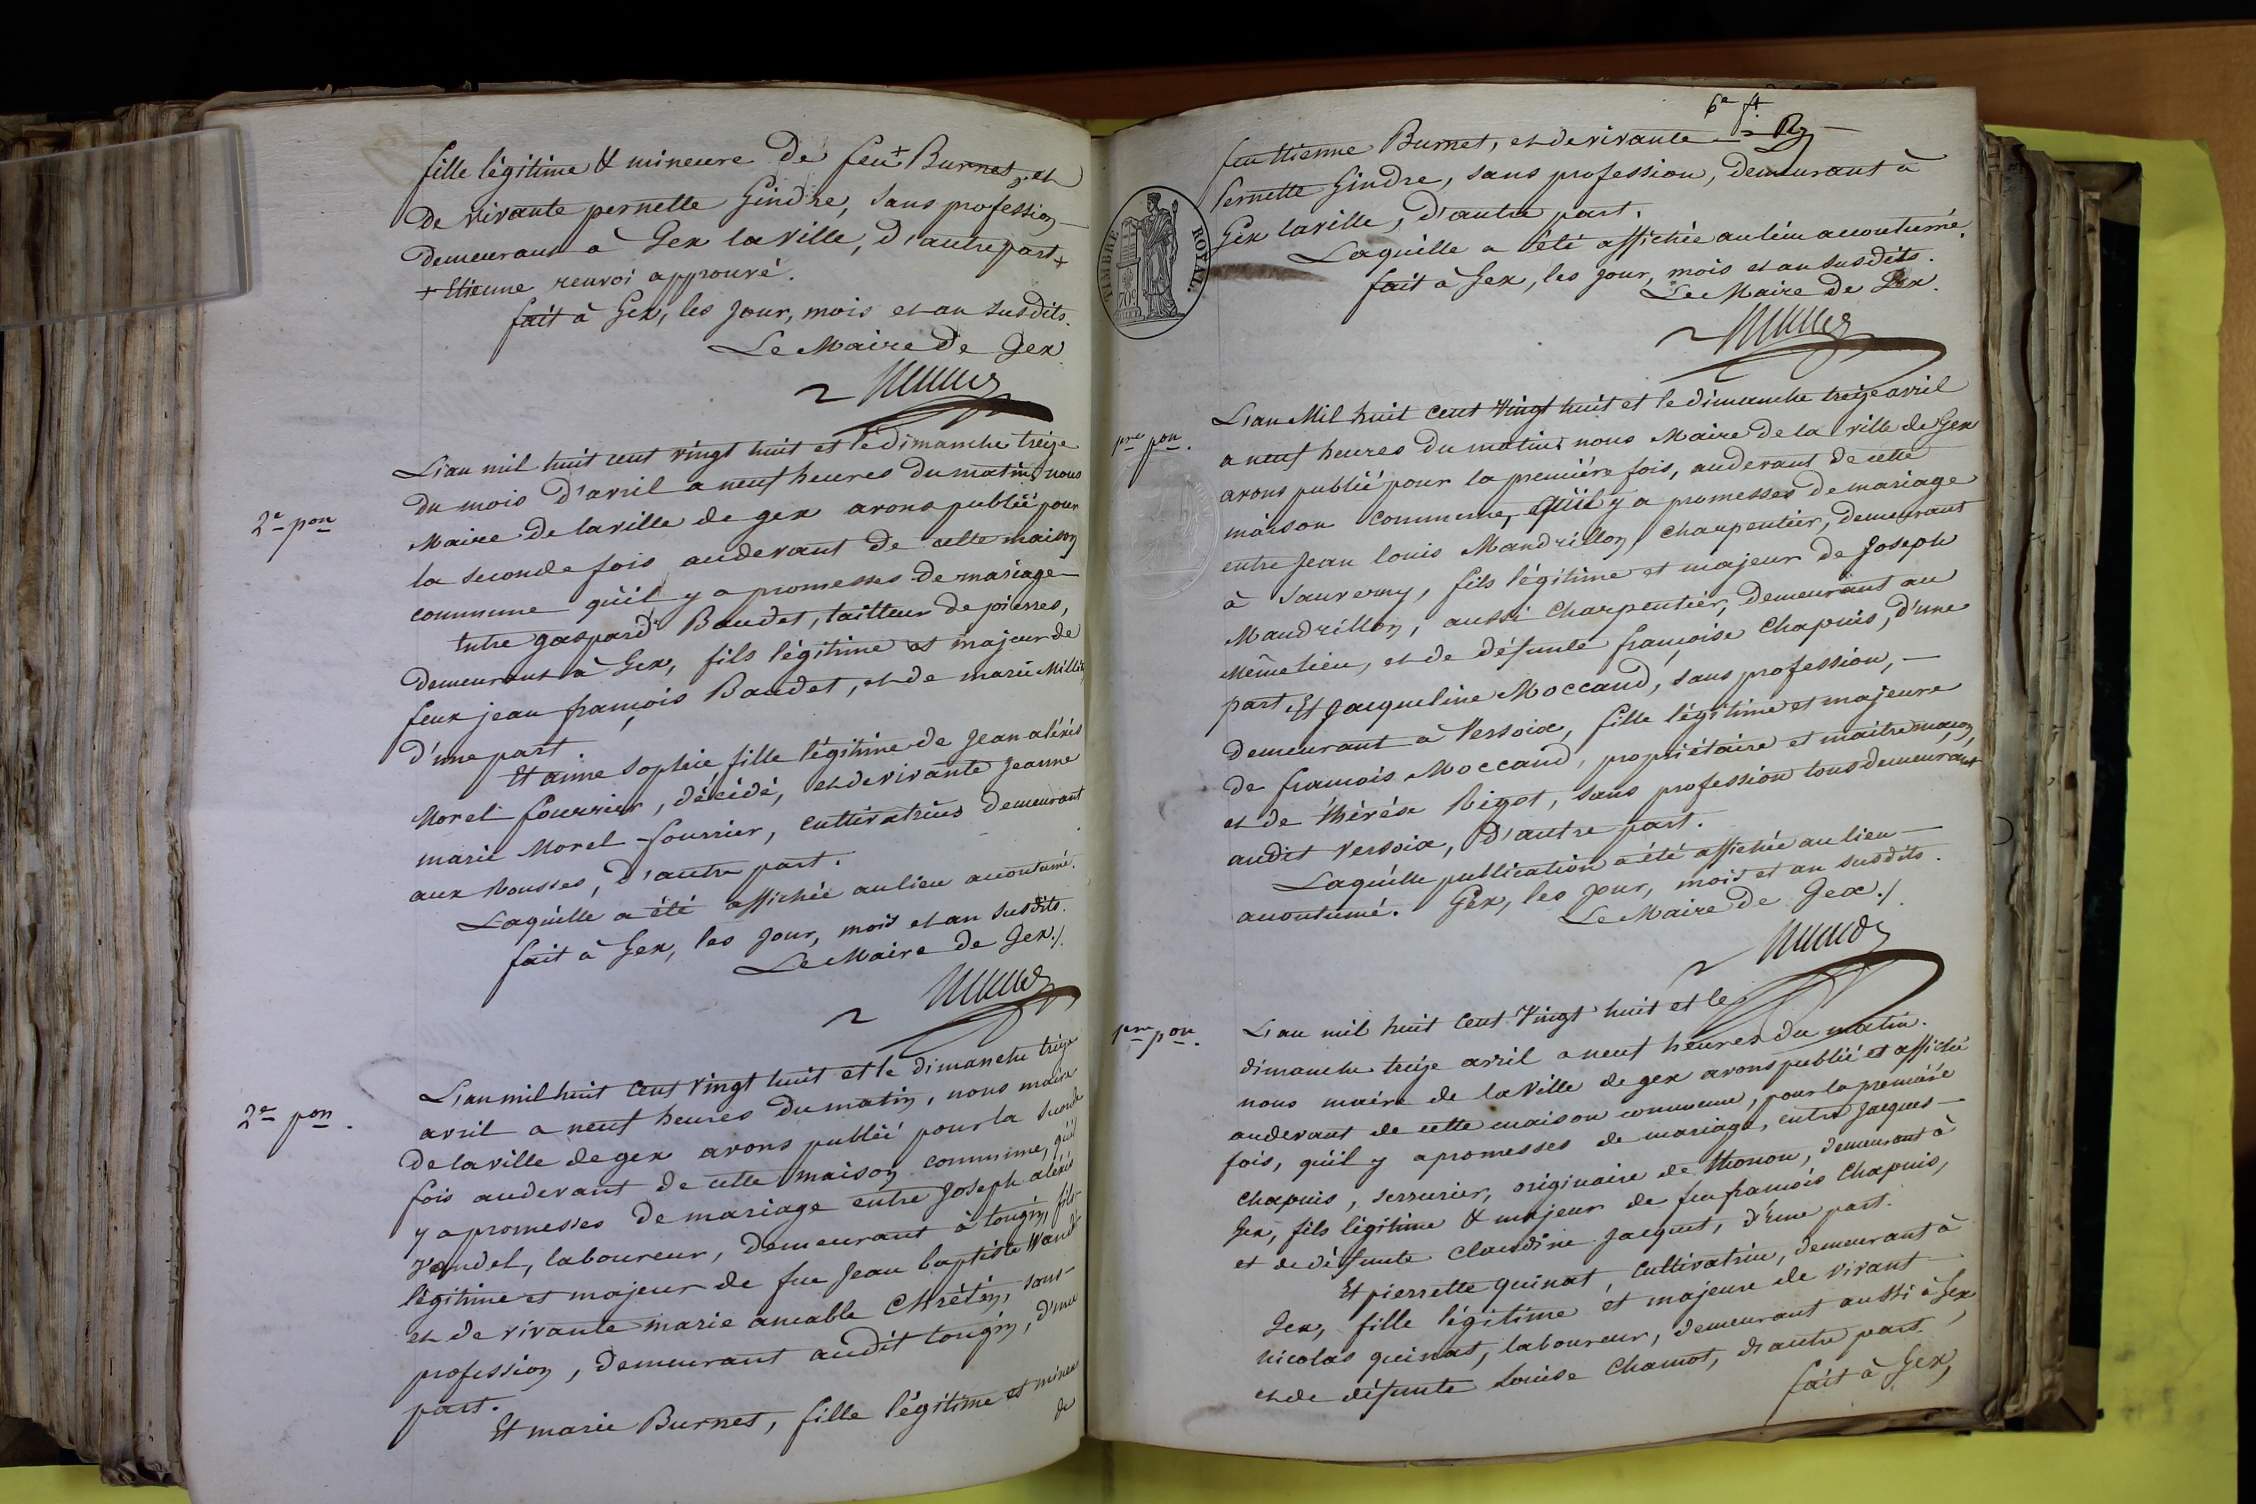 fille légitime & mineure de feu + Burnet, et
de vivante pernette Gindre, sans profession
demeurant à Gex la ville, d'autre part +
+ Etienne renvoi approuvé.
fait à Gex, les jour, mois et an susdits.
Le Maire de Gex
2e pon
L'an mil huit cent vingt huit et le dimanche treize
du mois d'avril a neuf heures du matin, nous
Maire de la ville de gex avons publié pour
la seconde fois audevant de cette maison
commune qu'il y a promesses de mariage
Entre gaspard Baudet, tailleur de pierres,
demeurant à Gex, fils légitime et majeur de
feux jean françois Baudet, et de marie Millit,
d'une part.
Et anne Sophie fille légitime de Jean aléxis
Morel fourrier, décédé, et de vivante Jeanne
marie Morel-fourrier, cultivatrices demeurant
aux Rousses, d'autre part.
Laquelle a été affichée au lieu accoutumé.
fait à Gex, les jour, mois et an susdits.
Le Maire de Gex./.
2e pon.
L'an mil huit cent vingt huit et le dimanche treize
avril a neuf heures du matin, nous maire
de la ville de gex avons publié pour la seconde
fois audevant de cette maison commune, qu'il
y a promesses de mariage entre Joseph aléxis
Vandel, laboureur, demeurant à tougin, fils
légitime et majeur de feu Jean baptiste Vandel
et de vivante marie amable Chrétin, sans
profession, demeurant audit tougin, d'une
part.
Et marie Burnet, fille légitime et mineure
de
6e ft.
feu Etienne Burnet, et de vivante
Pernette Gindre, sans profession, demeurant à
Gex la ville, d'autre part.
Laquelle a été affichée au lieu accoutumé.
fait à Gex, les jour, mois et an susdits.
Le Maire de Gex.
TIMBRE ROYAL.
pre pon.
L'an Mil huit cent vingt huit et le dimanche treize avril
a neuf heures du matin, nous Maire de la ville de Gex
avons publié pour la première fois, audevant de cette
maison commune, qu'il y a promesses de mariage
entre Jean louis Mandrillon, charpentier, demeurant
à Sauverny, fils légitime et majeur de Joseph
Mandrillon, aussi charpentier, demeurant au
même lieu, et de défunte françoise Chapuis, d'une
part, Et Jacqueline Moccand, sans profession,
demeurant à Versoix, fille légitime et majeure
de françois Moccand, propriétaire et maitre maçon,
et de thérése Rigot, sans profession tous demeurant
audit Versoix, d'autre part.
Laquelle publication a été affichée au lieu
accoutumé. Gex, les jour, mois et an susdits.
Le Maire de Gex./.
pre pon.
L'an mil huit cent vingt huit et le
dimanche treize avril a neuf heures du matin.
nous maire de la Ville de gex avons publié et affiché
audevant de cette maison commune, pour la première
fois, qu'il y a promesses de mariage, entre Jacques
Chapuis, serrurier, originaire de thonon, demeurant à
Gex, fils légitime & majeur de feu françois Chapuis,
et de défunte Claudine Jacquet, d'une part.
Et pierrette quinat, cultivatrice, demeurant à
Gex, fille légitime et majeure de vivant
nicolas quinat, laboureur, demeurant aussi à Gex
et de défunte Louise Chamot, d'autre part.
fait à Gex,